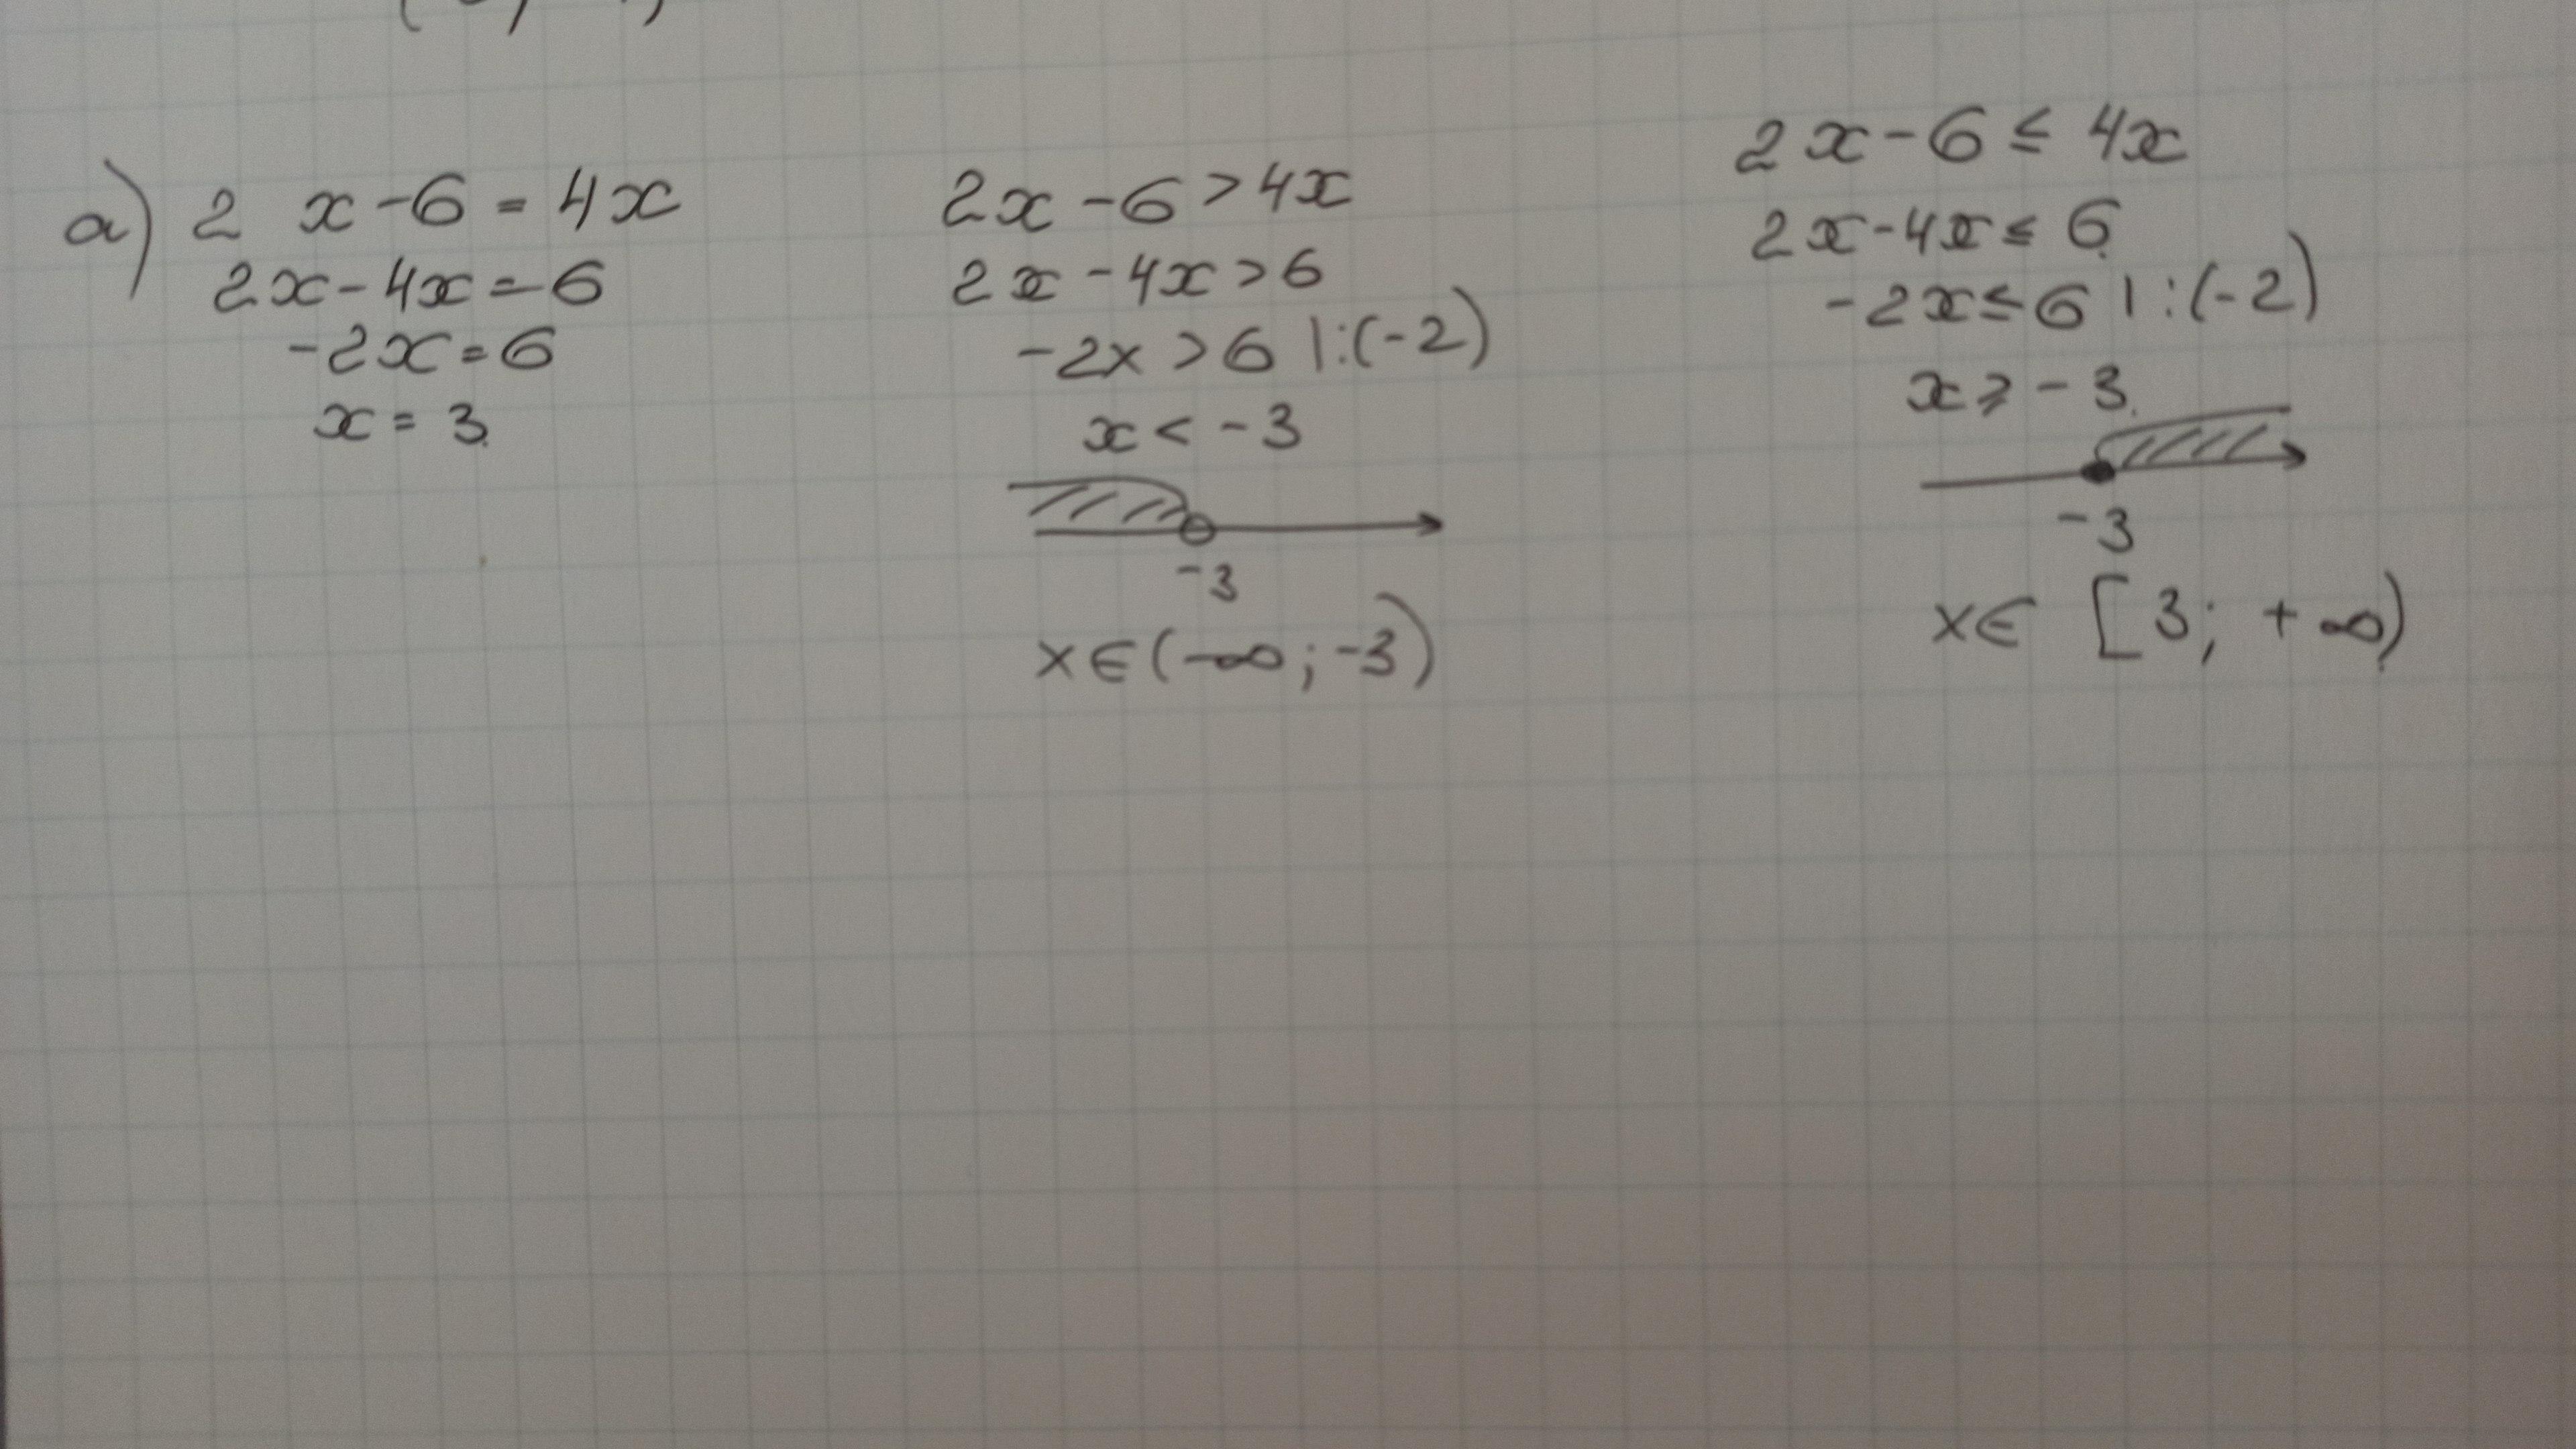 a) 2 x - 6 = 4x
2x - 4x = 6
-2x = 6
x = 3
2x - 6 > 4x
2x - 4x > 6
-2x > 6 | : (-2)
x < -3
-3
x ∈ (-∞; -3)
2x - 6 ≤ 4x
2x - 4x ≤ 6
-2x ≤ 6 | : (-2)
x ⩾ - 3
-3
x ∈ [3; +∞)